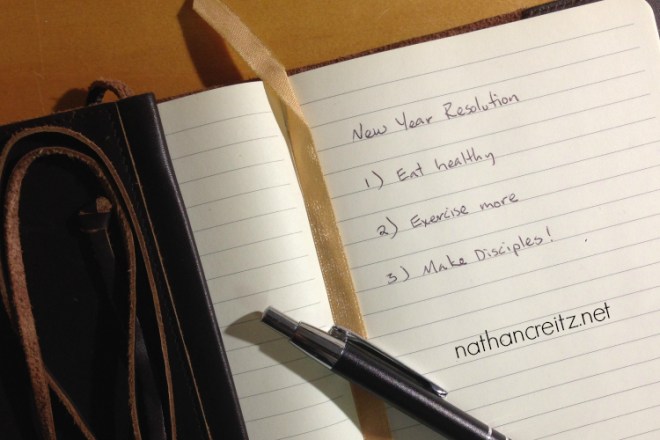 New Year Resolution
1) Eat healthy
2) Exercise more
3) Make Disciples!
nathancreitz.net